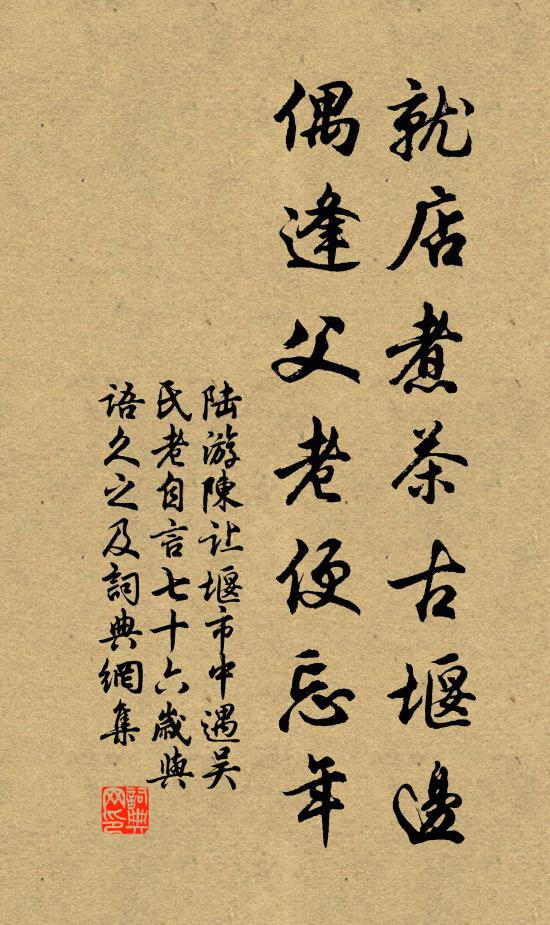 就店煮茶古堰邊
偶逢父老便忘年
陆游陳让堰市中遇吴
氏老自言七十六歲與
语久之及詞典網集
詞典网印